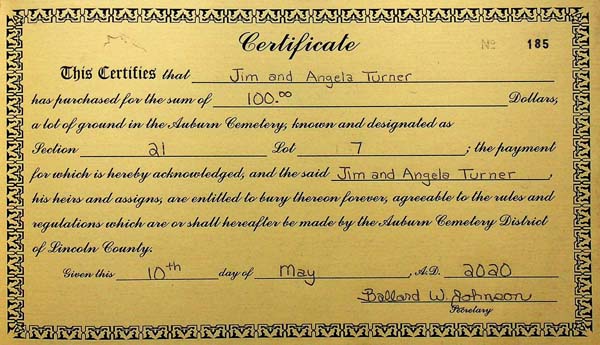 Certificate № 185
This Certifies that Jim and Angela Turner
has purchased for the sum of 100.00 Dollars,
a lot of ground in the Auburn Cemetery, known and designated as
Section 21 Lot 7 ; the payment
for which is hereby acknowledged, and the said Jim and Angela Turner,
his heirs and assigns, are entitled to bury thereon forever, agreeable to the rules and
regulations which are or shall hereafter be made by the Auburn Cemetery District
of Lincoln County.
Given this 10th day of May, A.D. 2020
Ballard W. Johnson
Secretary